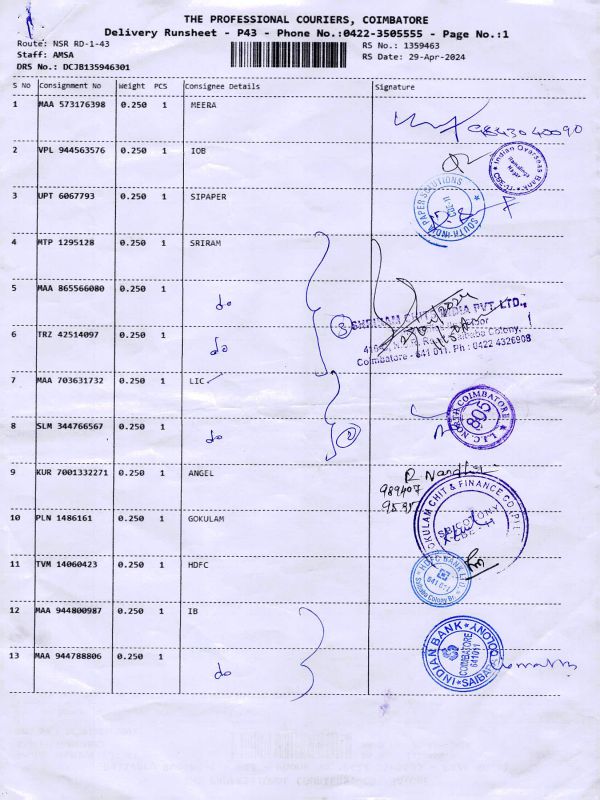 THE PROFESSIONAL COURIERS, COIMBATORE
Delivery Runsheet - P43 - Phone No.:0422-3505555 - Page No.:1
Route: NSR RD-1-43 RS No.: 1359463
Staff: AMSA RS Date: 29-Apr-2024
DRS No.: DCJB135946301
S No Consignment No Weight PCS Consignee Details Signature
1 MAA 573176398 0.250 1 MEERA
9843040090
2 VPL 944563576 0.250 1 IOB
Indian Overseas Bank
3 UPT 6067793 0.250 1 SIPAPER
SOUTH INDIA PAPER SOLUTIONS
4 MTP 1295128 0.250 1 SRIRAM
5 MAA 865566080 0.250 1 do
3 SHRIRAM CHIT INDIA PVT LTD.,
6 TRZ 42514097 0.250 1 do
Saibaba Colony,
Coimbatore - 641 011. Ph : 0422 4326808
7 MAA 703631732 0.250 1 LIC
L.I.C. NORTH COIMBATORE
805
8 SLM 344766567 0.250 1 do 2
9 KUR 7001332271 0.250 1 ANGEL
R. Nandhi
989407
10 PLN 1486161 0.250 1 GOKULAM
GOKULAM CHIT & FINANCE CO. (P) LTD
11 TVM 14060423 0.250 1 HDFC
HDFC BANK LTD
Saibaba Colony Br.
12 MAA 944800987 0.250 1 IB
INDIAN BANK SAIBABA COLONY
COIMBATORE
641011
13 MAA 944788806 0.250 1 do